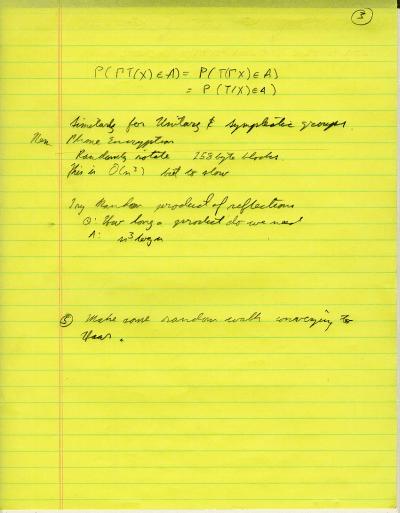 ③
P(ΓT(X)∈A) = P(T(ΓX)∈A)
= P(T(X)∈A)
Similarly for Unitary & symplectic groups.
Phone Encryption
Randomly rotate 258 byte blocks.
This is O(n³) but so slow
Try Random product of reflections
Q: How long a product do we need
A: n³ log n
⑤ Make some random walk converging to
Haar.